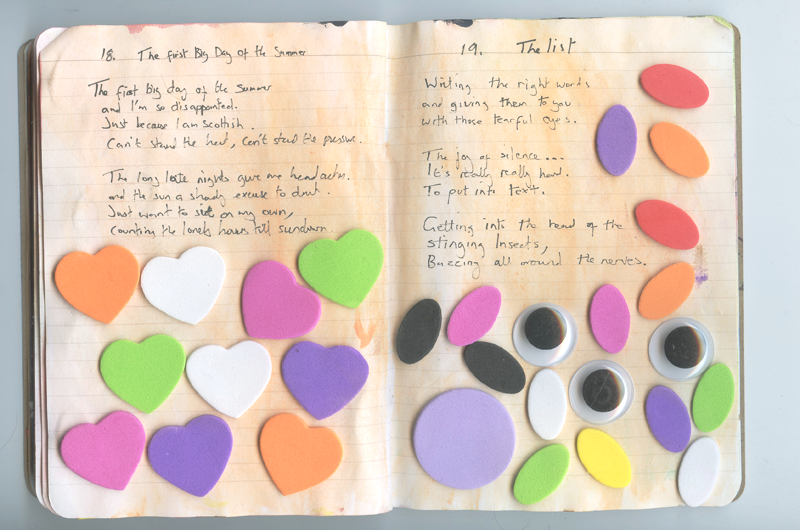 18. The first Big Day of the Summer
The first big day of the Summer
and I'm so disappointed.
Just because I am Scottish.
Can't stand the heat, can't stand the pressure.
The long late nights give me headaches.
and the sun a shady excuse to drink.
Just want to sit on my own,
counting the lonely hours till sundown.
19. The list
Writing the right words
and giving them to you
with those tearful eyes.
The joy of silence...
It's really really hard.
To put into text.
Getting into the head of the
stinging Insects,
Buzzing all around the nerves.